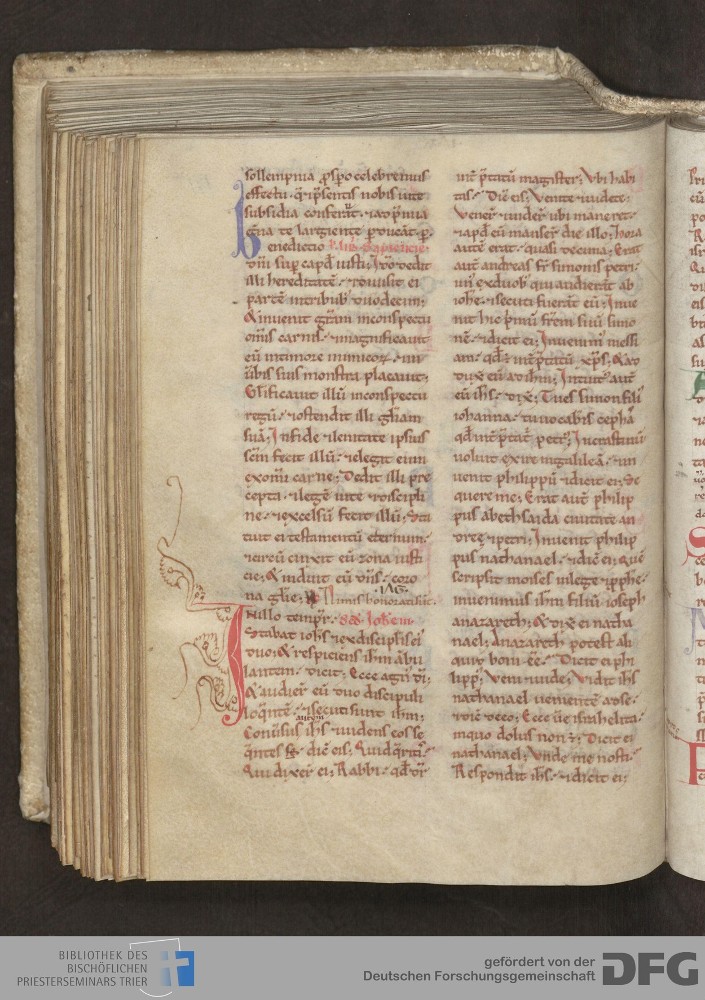 sollempnia ꝓsꝑo celebremus
effectu · q̄ ip̄sentis nobis uite
subsidia conferāt · ⁊ eterna
te largiente
Benedictio
dn̄i suꝑ capđ iusti; Ideo dedit
illi hereditatē · ⁊ diuisit ei
partē in tribub' duodecim;
& inuenit grām inconspectu
om̄is carnis · ⁊ magnificauit
eū intimore inimicoꝝ · ⁊ in
ūbis suis monstra placauit;
Glīficauit illū inconspectu
regū · ⁊ ostendit illi glīam
suā; Infide ⁊ lenitate ipsius
sc̄m fecit illū · ⁊ elegit eum
exomī carne; Dedit illi pre
cepta · ⁊ legē uite ⁊ discipli
ne · ⁊ excelsū fecit illū; Sta
tuit ei testamentū eternum ·
⁊ circū cinxit eū zona iusti
cie; & induit eū dn̄s · coro
na glīe; Nimis honorati s̄t
Inillo tempr̄ · scd̄ Ioh̄em
Stabat ioh̄s ⁊ exdisciplis ei'
duo; & respiciens ih̄m ābu
lantem · dicit; Ecce agn' dī;
& audier̄ eū duo discipuli
loq̄ntē · ⁊ secuti sunt ih̄m;
autem
Conūsus ih̄s ⁊ uidens eos se
q̄ntes se · dic̄ eis; Quid q̄ritis
Qui dixer̄ ei; Rabbi · qd̄ dr̄
int̄ p̄tatū magister; Vbi habi
tas · Dic̄ eis; Venite ⁊ uidete;
Vener̄ ⁊ uider̄ ubi maneret ·
⁊ apd̄ eū manser̄ die illo; Hora
autē erat · quasi decima; Erat
aut̄ andreas fr̄ simonis petri ·
un' exduob' qui audierāt ab
ioh̄e · ⁊ secuti fuerāt eū; Inue
nit hic p̄mū fr̄em suū simo
nē · ⁊ dicit ei; Inuenim' messi
am · qd̄ ē int̄ p̄tatū xp̄s; & ad
dux̄ eū ad ih̄m; Intuit' aut̄
eū ih̄s · dix̄; Tu es simon fili'
iohanna · tu uocabis cephas
qd̄ int̄ p̄tat̄ petr'; Incrastinū
uoluit exire ingalileā · ⁊ in
uenit philippū ⁊ dicit ei; Se
quere me; Erat aut̄ philip
pus abethsaida ciuitate an
dreę ⁊ petri; Inuenit philip
pus nathanael · ⁊ dic̄ ei; Quē
scripsit moises inlege ⁊ ꝓphe ·
inuenimus ih̄m filiū ioseph
anazareth; & dix̄ ei natha
nael; Anazareth potest ali
quid boni eē · Dicit ei phi
lipp'; Veni ⁊ uide; Vidit ih̄s
nathanael uenientē adse ·
⁊ dic̄ deeo; Ecce ūe isrł̄helita ·
inquo dolus non ē; Dicit ei
nathanael; Vnde me nosti ·
Respondit ih̄s · ⁊ dicit ei;
BIBLIOTHEK DES
BISCHÖFLICHEN
PRIESTERSEMINARS TRIER
gefördert von der
Deutschen Forschungsgemeinschaft
DFG